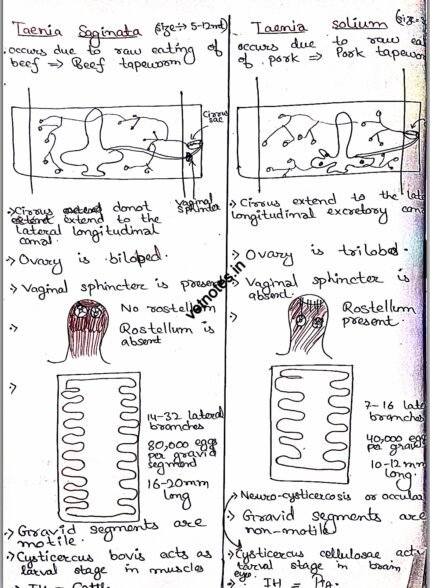 Taenia Saginata (size → 5-12mt)
occurs due to raw eating of
beef ⇒ Beef tapeworm
Cirrus
sac
vaginal
sphincter
→ Cirrus donot
extend to the
lateral longitudinal
canal.
→ Ovary is biloped.
→ Vaginal sphincter is present
No rostellum
→ Rostellum is
absent
→
14-32 lateral
branches
80,000 eggs
per gravid
segment
16-20mm
long
→ Gravid segments are
motile.
→ Cysticercus bovis acts as
larval stage in muscles
IH = Cattle
Taenia solium (size
occurs due to raw
of pork ⇒ Pork
→ Cirrus extend to the
longitudinal excretory
→ Ovary is trilobed.
→ Vaginal sphincter is
absent.
→ Rostellum
present.
7-16
branches
40,000 eggs
per
10-12mm
long.
→ Neuro-cysticercosis or
→ Gravid segments are
non-motile
→ Cysticercus cellulosae
larval stage in brain
eye.
IH =
vetnotes.in